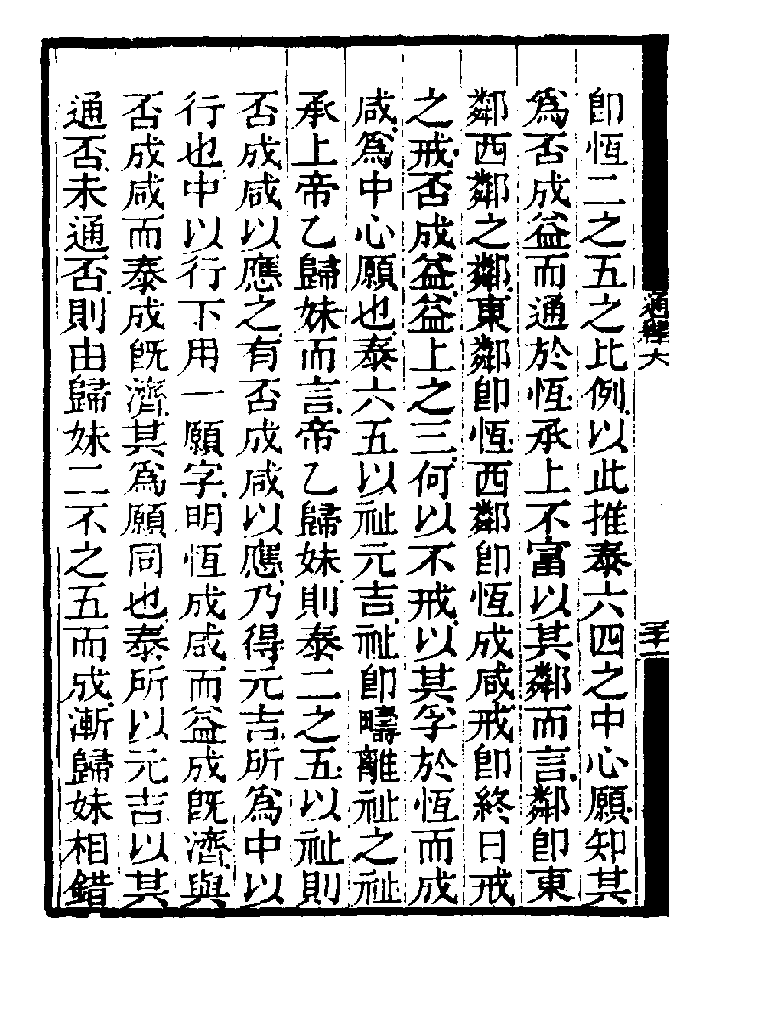 卽恆二之五之比例以此推泰六四之中心願知其
爲否成益而通於恆承上不富以其鄰而言鄰卽東
鄰西鄰之鄰東鄰卽恆西鄰卽恆成咸戒卽終日戒
之戒否成益益上之三何以不戒以其孚於恆而成
咸爲中心願也泰六五以祉元吉祉卽疇離祉之祉
承上帝乙歸妹而言帝乙歸妹則泰二之五以祉則
否成咸以應之有否成咸以應乃得元吉所爲中以
行也中以行下用一願字明恆成咸而益成旣濟與
否成咸而泰成旣濟其爲願同也泰所以元吉以其
通否未通否則由歸妹二不之五而成漸歸妹相錯